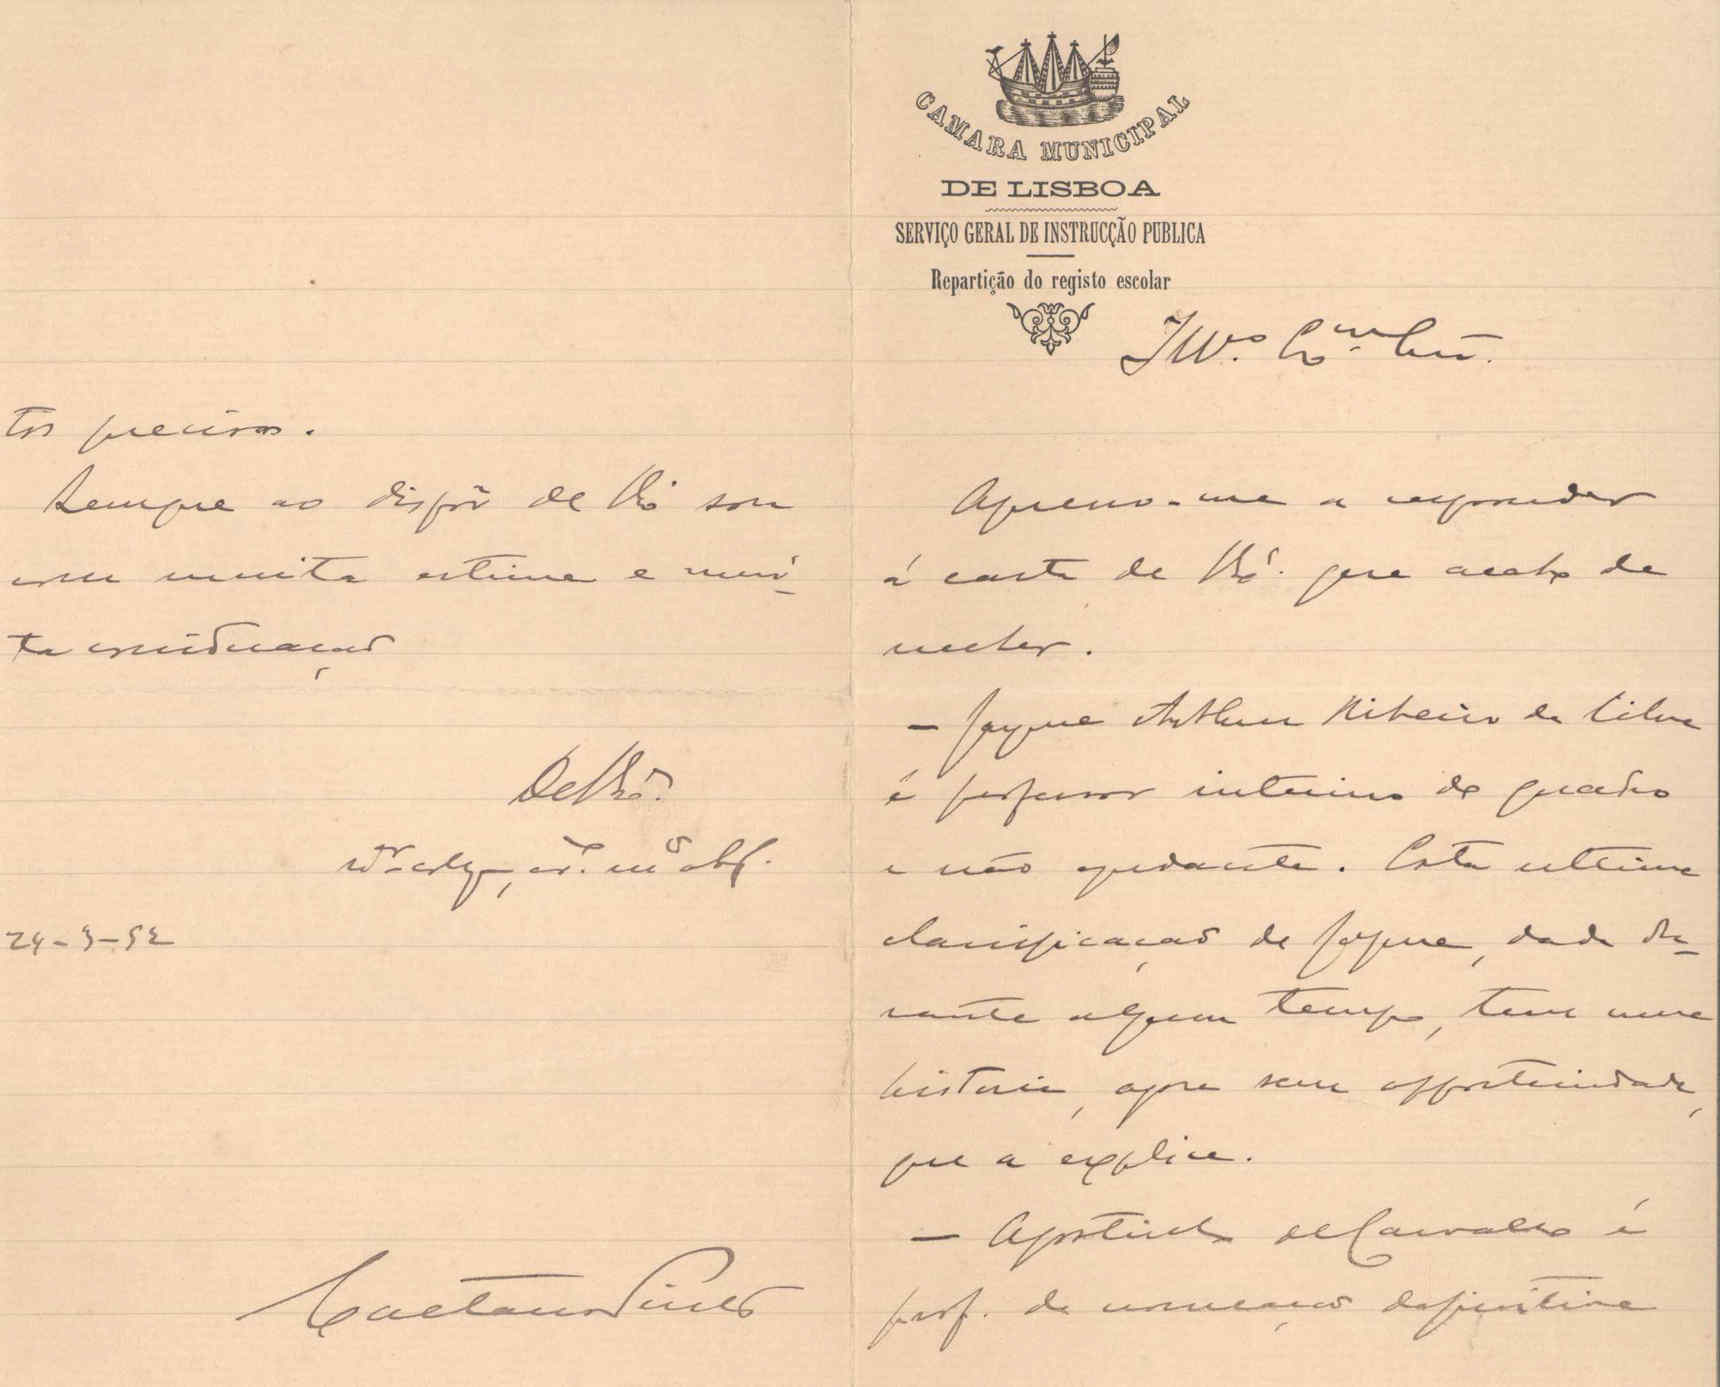 CAMARA MUNICIPAL
DE LISBOA
SERVIÇO GERAL DE INSTRUCÇÃO PUBLICA
Repartição do registo escolar
Illmo. Exmo. Snr.
Apresso-me a responder
á carta de V. Exª. que acabo de
receber.
— Jayme Arthur Ribeiro da Silva
é professor interino do quadro
e não ajudante. Esta ultima
classificação de Jayme, dada du-
rante algum tempo, tem uma
historia, agora sem opportunidade,
que a explica.
— Agostinho de Carvalho é
prof. de nomeação definitiva
tos precisos.
Sempre ao dispôr de V. Exª sou
com muita estima e mui-
ta consideração
De V. Exª.
obg.
24-3-92
Caetano Pinto